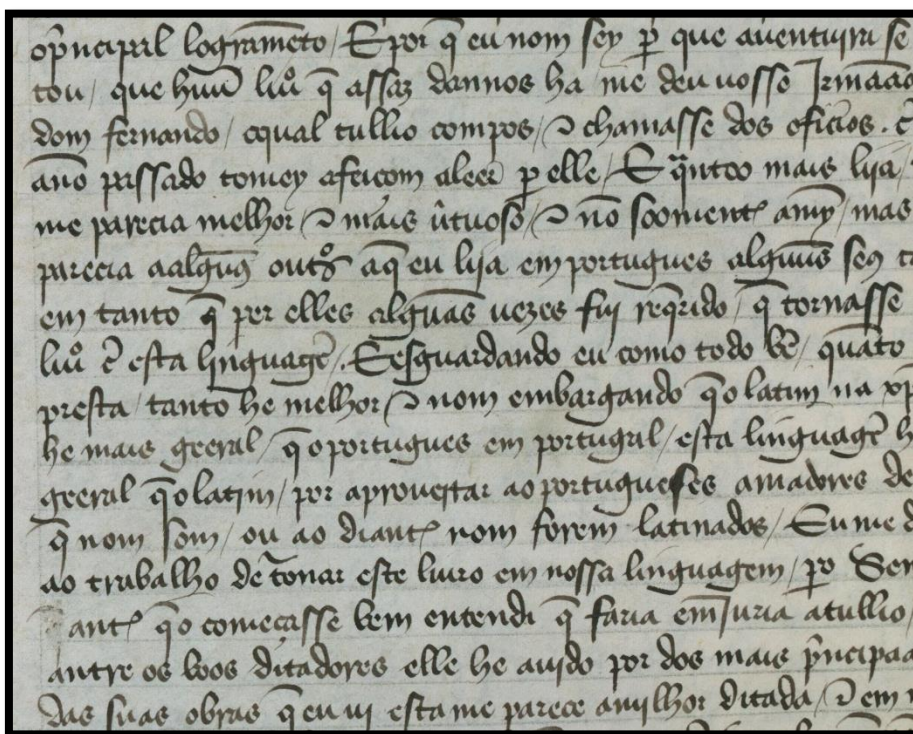 op̃ncipal logram̃eto / E por q̃ eu nom sey p̃ que auentuira se
tou / que huũ liuº q̃ assaz dannos ha / me deu uosso Irmaão
dom fernando / oqual tullio compos / ⁊ chamasse dos oficios . ẽ
ano passado tomey afeicom aleer p elle / E q̃nto mais lija /
me parecia melhor ⁊ mais ũtuoso / ⁊ nõ soomente amy / mas
parecia aalgũs outºs aq̃ eu lija em portugues algũus seus
em tanto q̃ per elles algũas uezes fuy req̃rido / q̃ tornasse
liuº ẽ esta linguagẽ / Eesguardando eu como todo bẽ / quãto
presta / tanto he melhor / ⁊ nom embargando q̃o latim na xp̃
he mais geeral / q̃o portugues em portugal / esta linguagẽ h
geeral q̃o latim / por aproueytar ao portugueses amadores de
q̃ nom som / ou ao diante nom forem latinados / Eu me d
ao trabalho de tõnar este liuro em nossa linguagem / po Sen
ante q̃o começasse bem entendi q̃ faria emJuria atullio /
antre os boos ditadores elle he auido por dos mais p̃ncipaa
das suas obras q̃ eu ui esta me parece amilhor ditada / ⁊ em